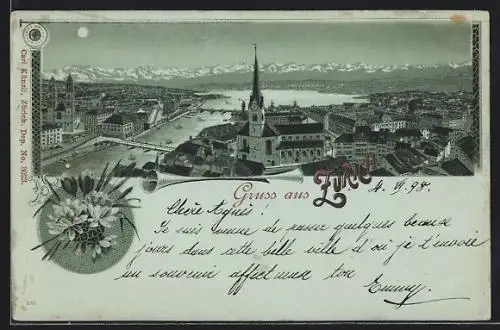 Carl Künzli, Zürich. Dep. No. 9023.
Gruss aus Zürich
4. VI. 98.
Chère Agnès!
Je suis venue de passer quelques beaux
jours dans cette belle ville d'où je t'envoie
un souvenir affectueux ton
Emmy.